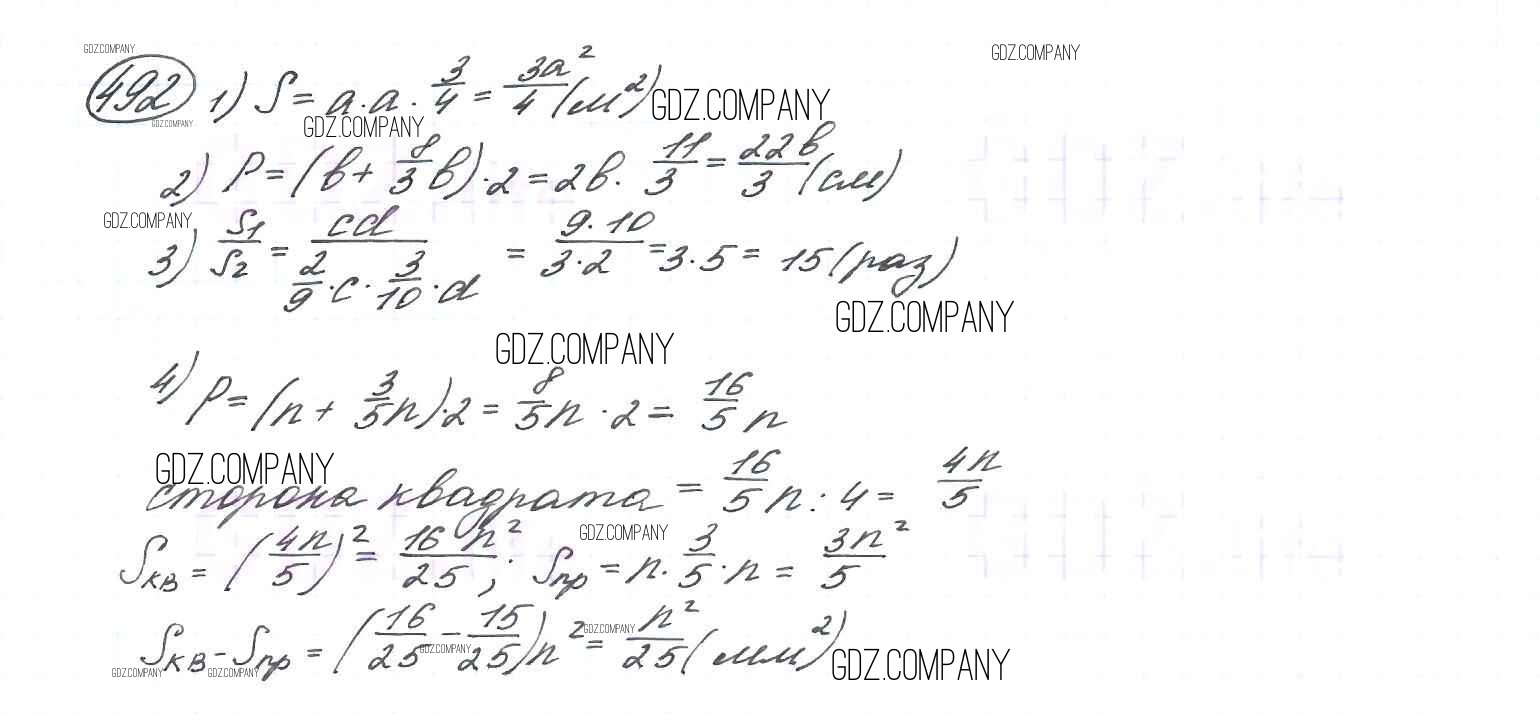 GDZ.COMPANY GDZ.COMPANY
492 1) S = a·a· 3/4 = 3a²/4 (м²) GDZ.COMPANY
GDZ.COMPANY GDZ.COMPANY
2) P = (в + 8/3 в)·2 = 2в· 11/3 = 22в/3 (см)
GDZ.COMPANY
3) S1/S2 = cd / (2/9 · c · 3/10 · d) = 9·10/3·2 = 3·5 = 15 (раз)
GDZ.COMPANY
GDZ.COMPANY
4) P = (n + 3/5 n)·2 = 8/5 n · 2 = 16/5 n
GDZ.COMPANY
сторона квадрата = 16/5 n : 4 = 4n/5
GDZ.COMPANY
Sкв = (4n/5)² = 16n²/25 ; Sпр = n · 3/5 · n = 3n²/5
GDZ.COMPANY
Sкв - Sпр = (16/25 - 15/25) n² = n²/25 (мм²)
GDZ.COMPANY
GDZ.COMPANY
GDZ.COMPANY GDZ.COMPANY